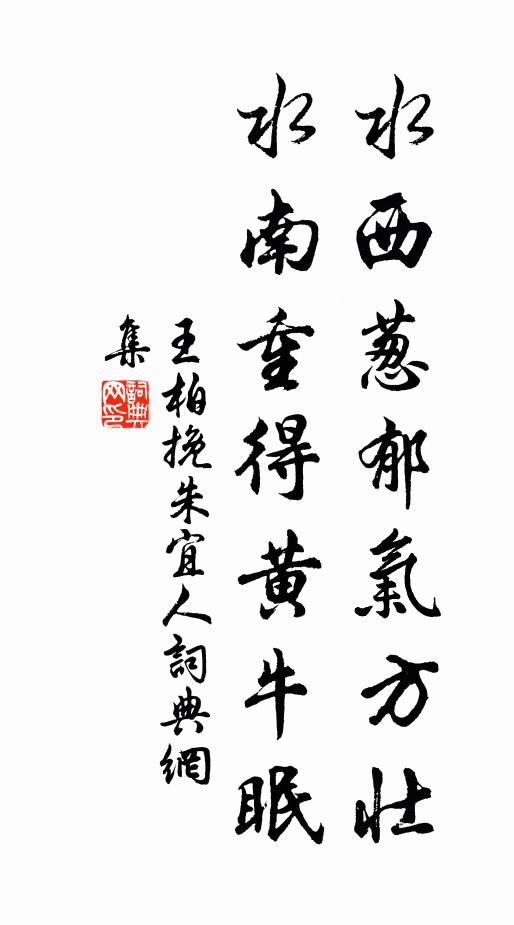 水西葱郁氣方壯
水南重得黄牛眠
王柏挽朱宜人詞典網
集
詞典
网印